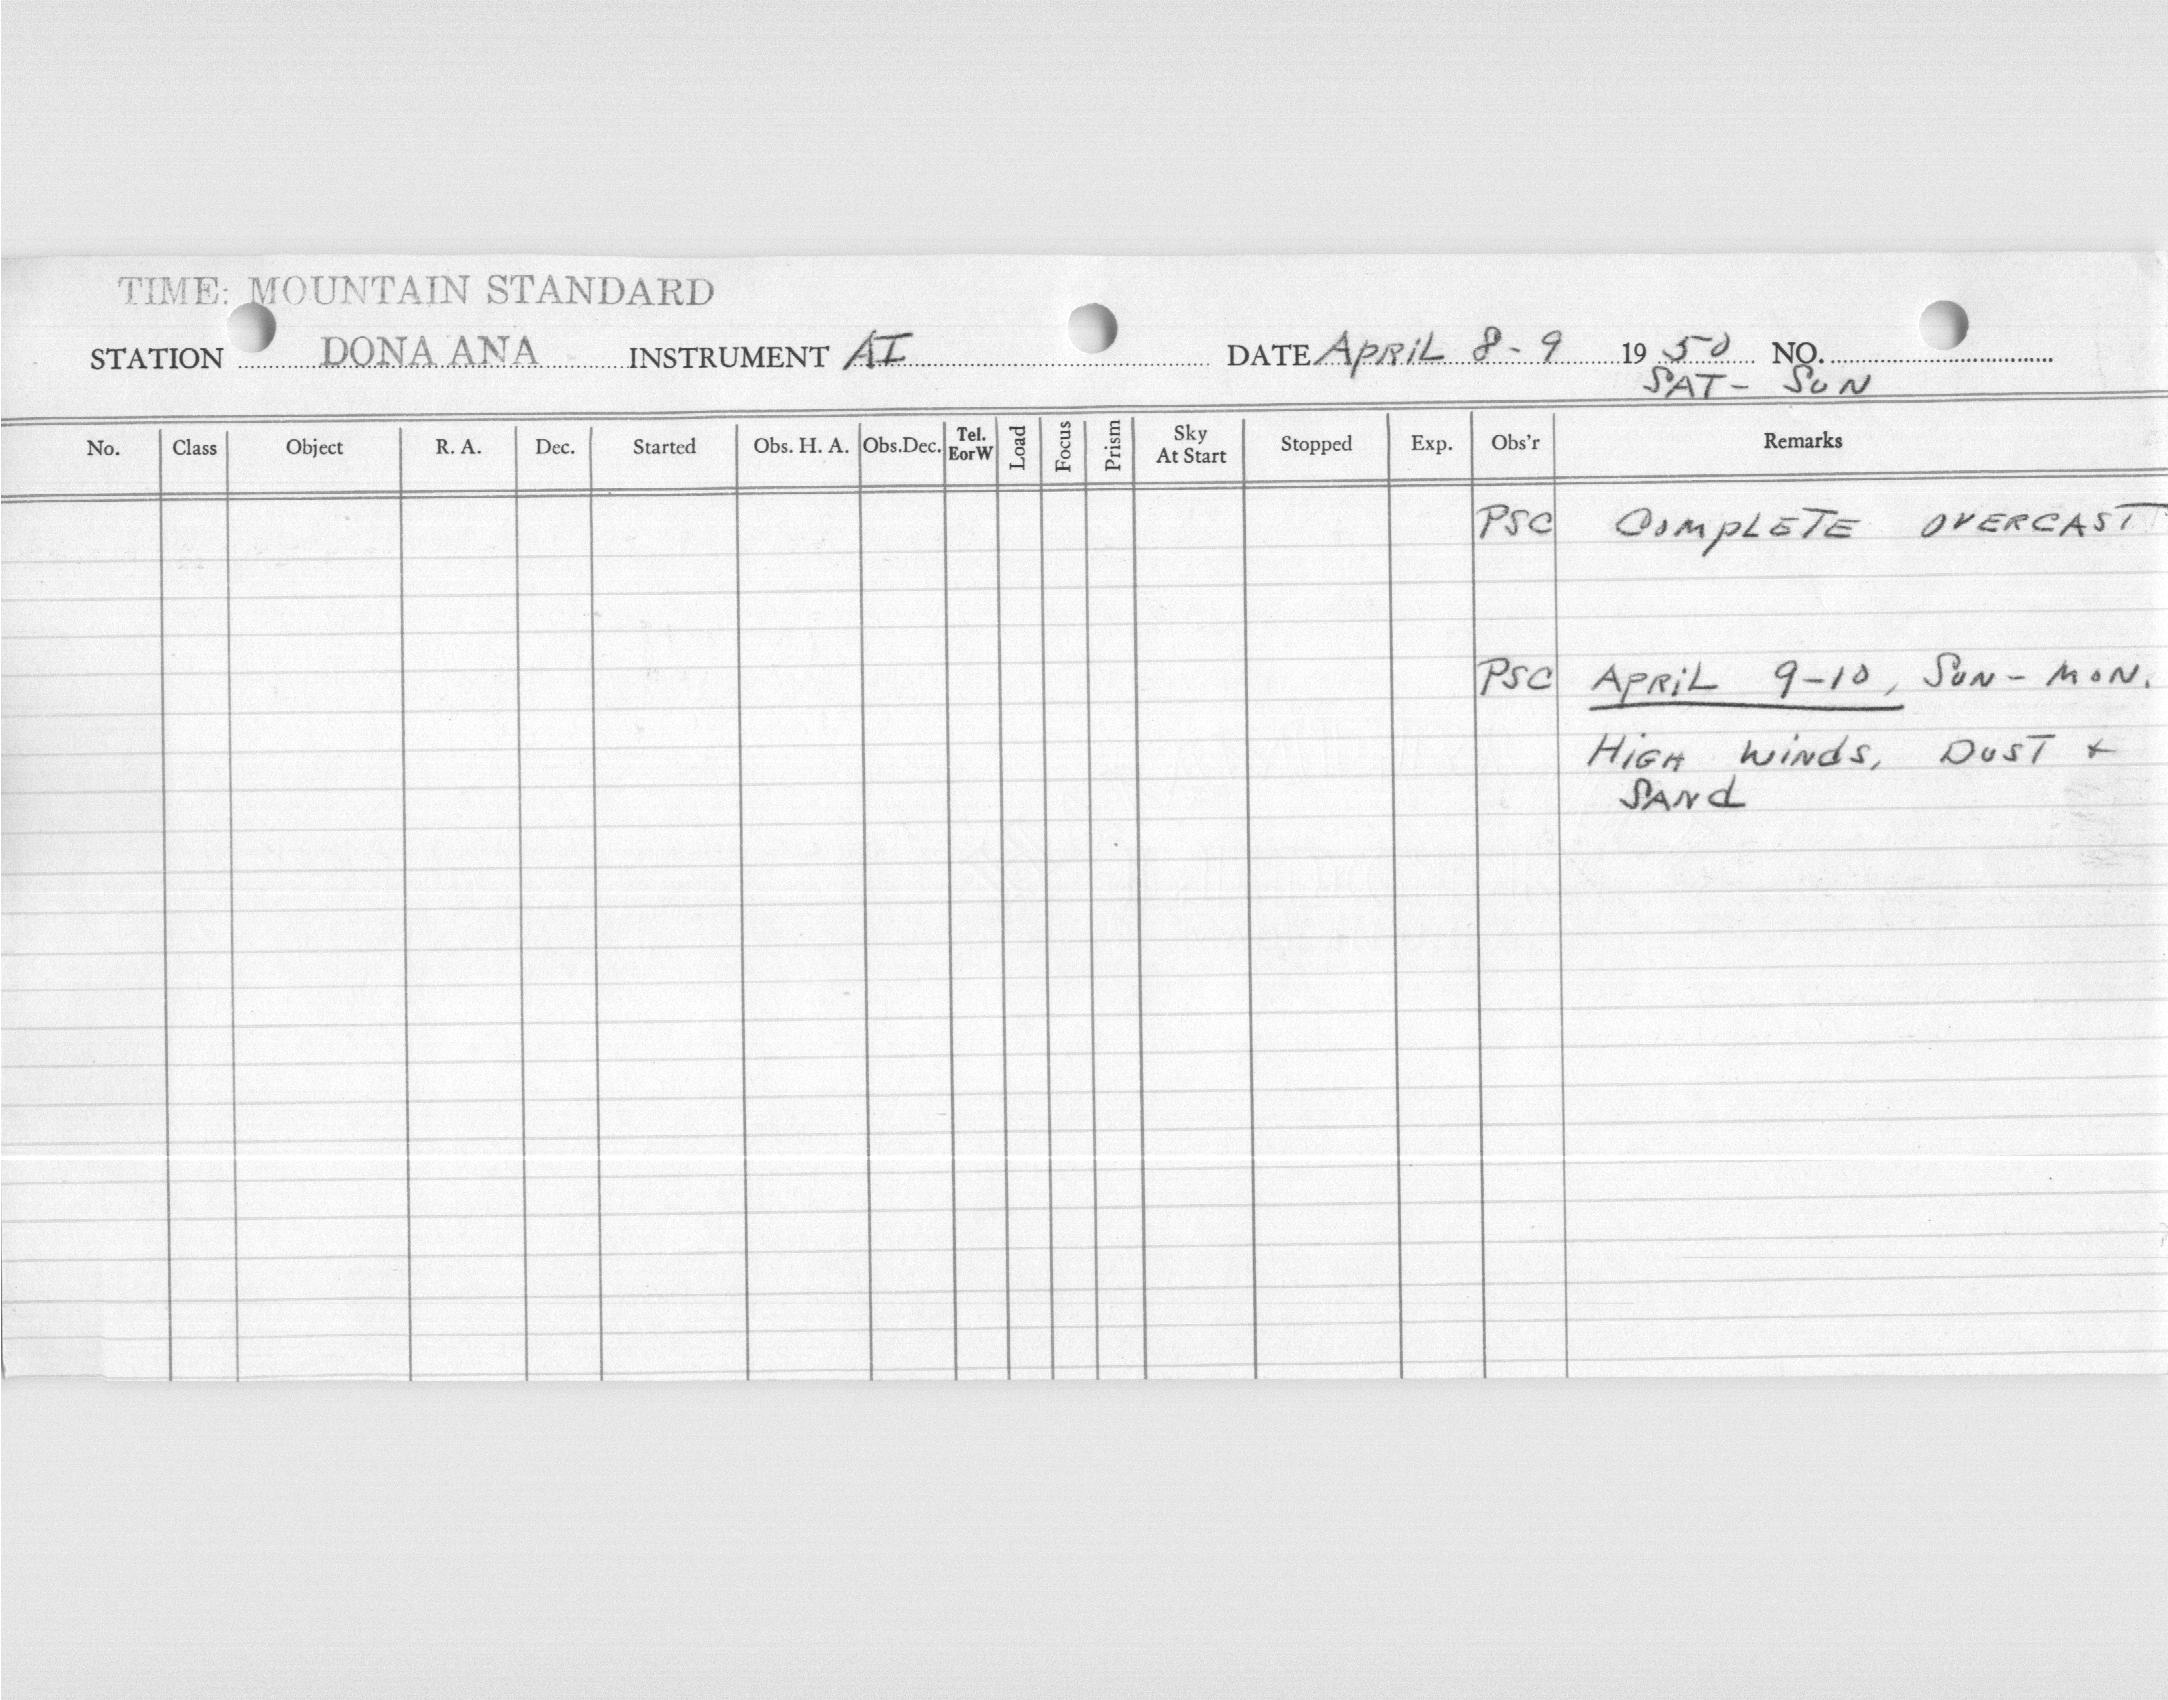 TIME: MOUNTAIN STANDARD
STATION DONA ANA INSTRUMENT AI DATE APRIL 8-9 1950 NO.
SAT- SUN
No. Class Object R. A. Dec. Started Obs. H. A. Obs.Dec. Tel. EorW Load Focus Prism Sky At Start Stopped Exp. Obs'r Remarks
PSC COMPLETE OVERCAST
PSC APRIL 9-10, SUN- MON.
HIGH WINDS, DUST +
SAND